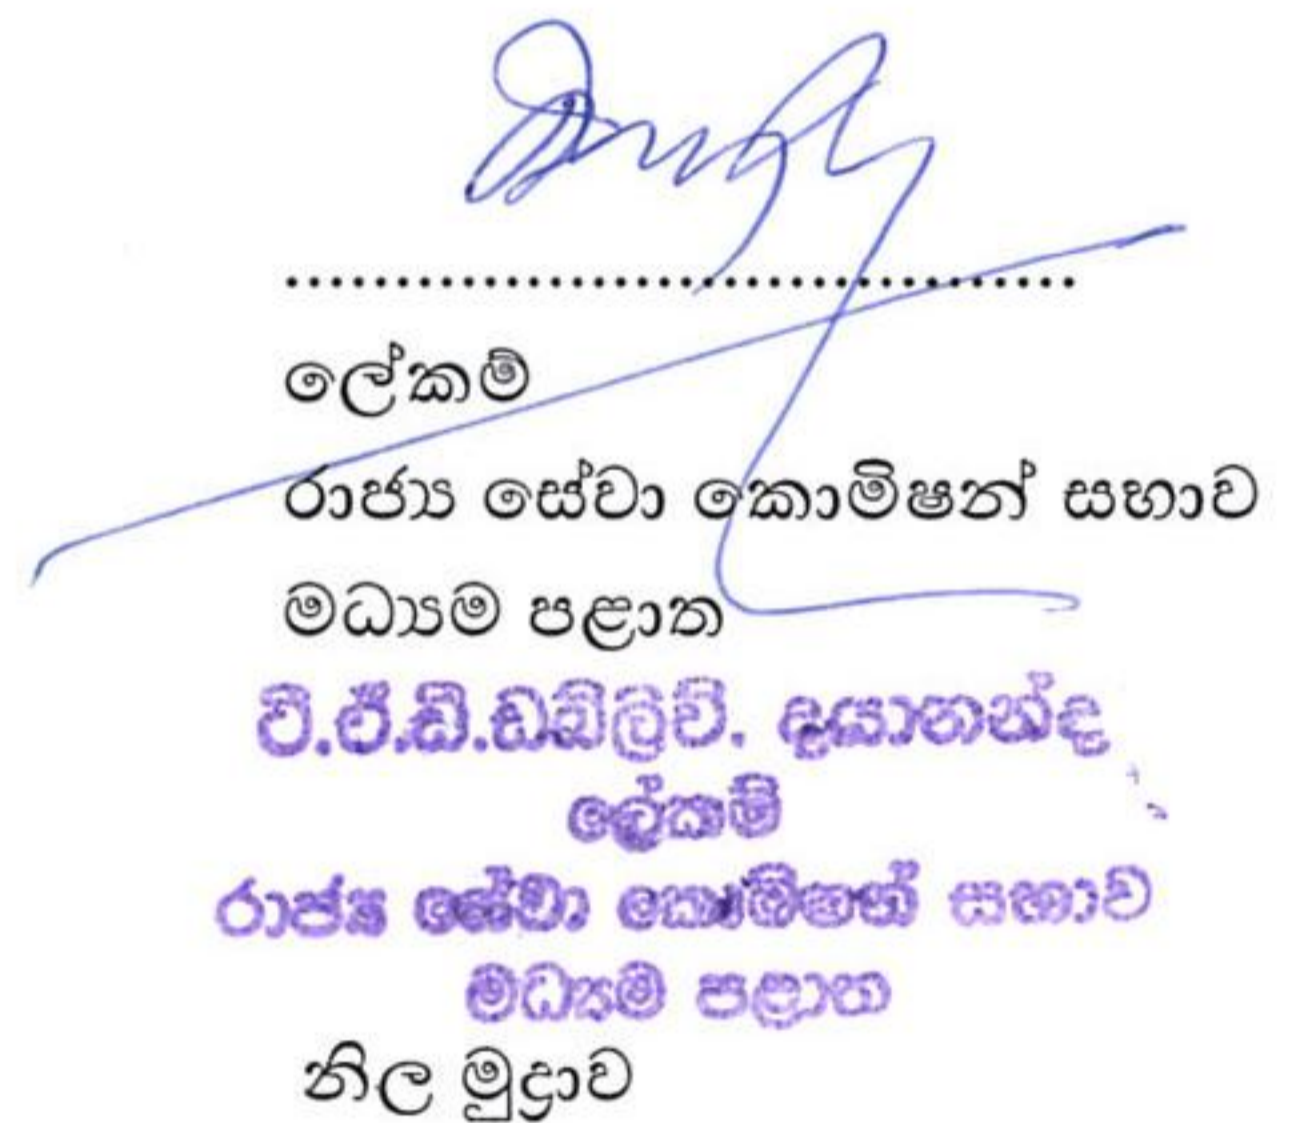 ..........................................
ලේකම්
රාජ්‍ය සේවා කොමිෂන් සභාව
මධ්‍යම පළාත
දයානන්ද
ලේකම්
රාජ්‍ය සේවා කොමිෂන් සභාව
මධ්‍යම පළාත
නිල මුද්‍රාව